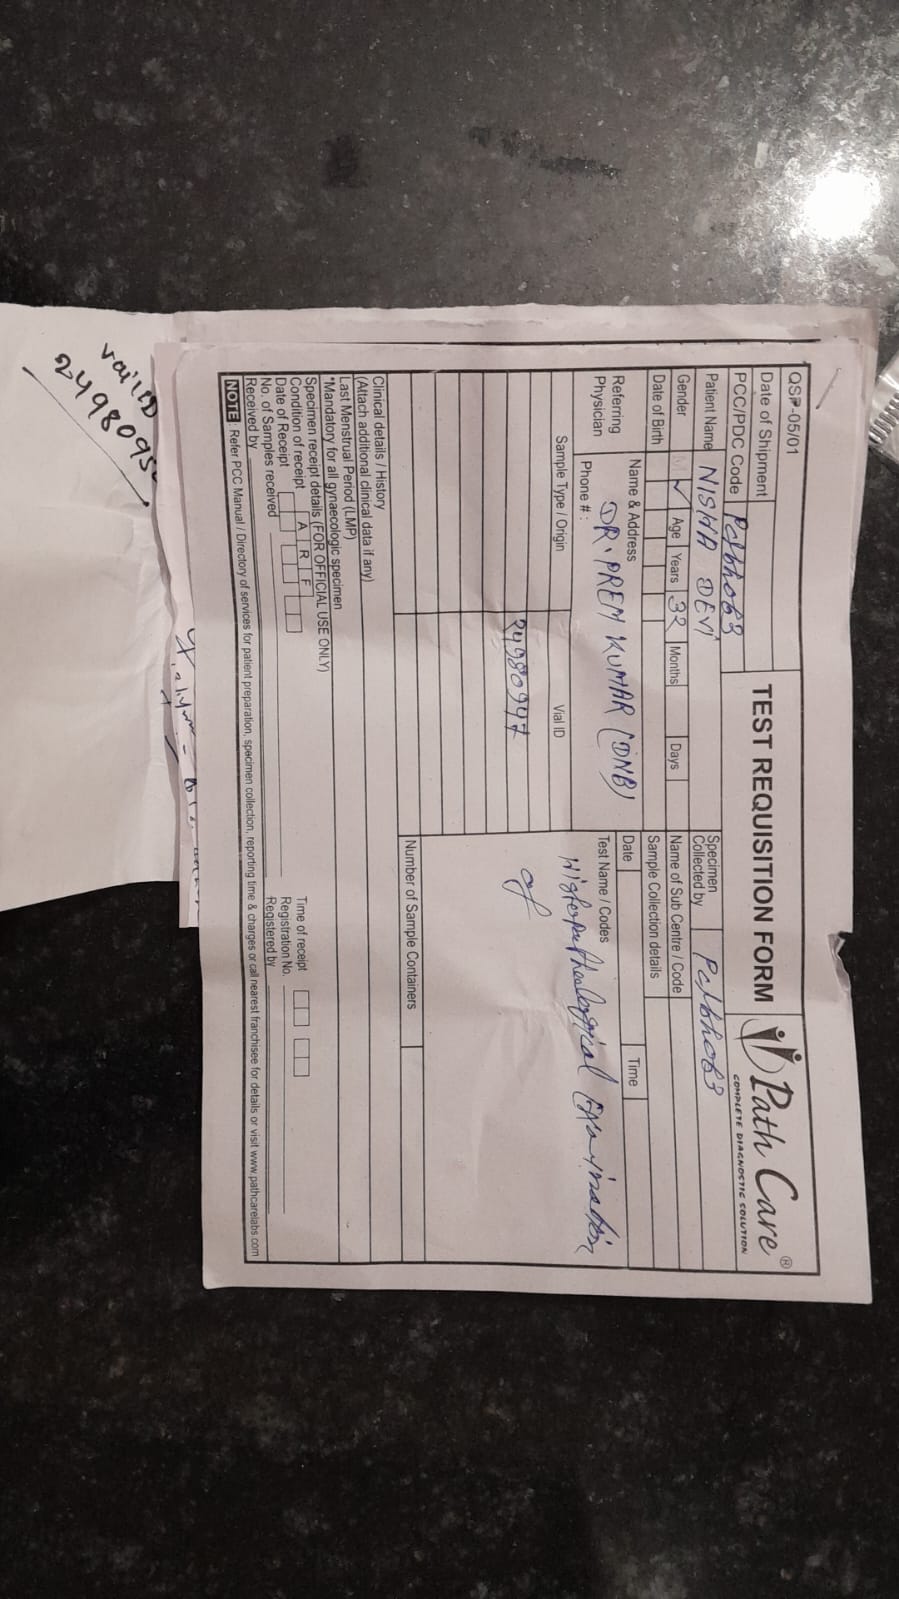 QSP-05/01
Date of Shipment
TEST REQUISITION FORM
Path Care ®
COMPLETE DIAGNOSTIC SOLUTION
PCC/PDC Code
Patient Name NISHA DEVI
Specimen Collected by
Gender M ✓ Age Years 32 Months Days
Name of Sub Centre / Code
Date of Birth
Sample Collection details
Date Time
Referring Physician
Name & Address
DR. PREM KUMAR (DNB)
Phone # :
Test Name / Codes
Sample Type / Origin Vial ID
Histopathological Examination
of
24980947
Number of Sample Containers
Clinical details / History
(Attach additional clinical data if any)
Last Menstrual Period (LMP)
*Mandatory for all gynaecologic specimen
Specimen receipt details (FOR OFFICIAL USE ONLY)
Condition of receipt A R F
Time of receipt
Date of Receipt
Registration No.
No. of Samples received
Registered by
Received by
NOTE : Refer PCC Manual / Directory of services for patient preparation, specimen collection, reporting time & charges or call nearest franchisee for details or visit www.pathcarelabs.com
2498095